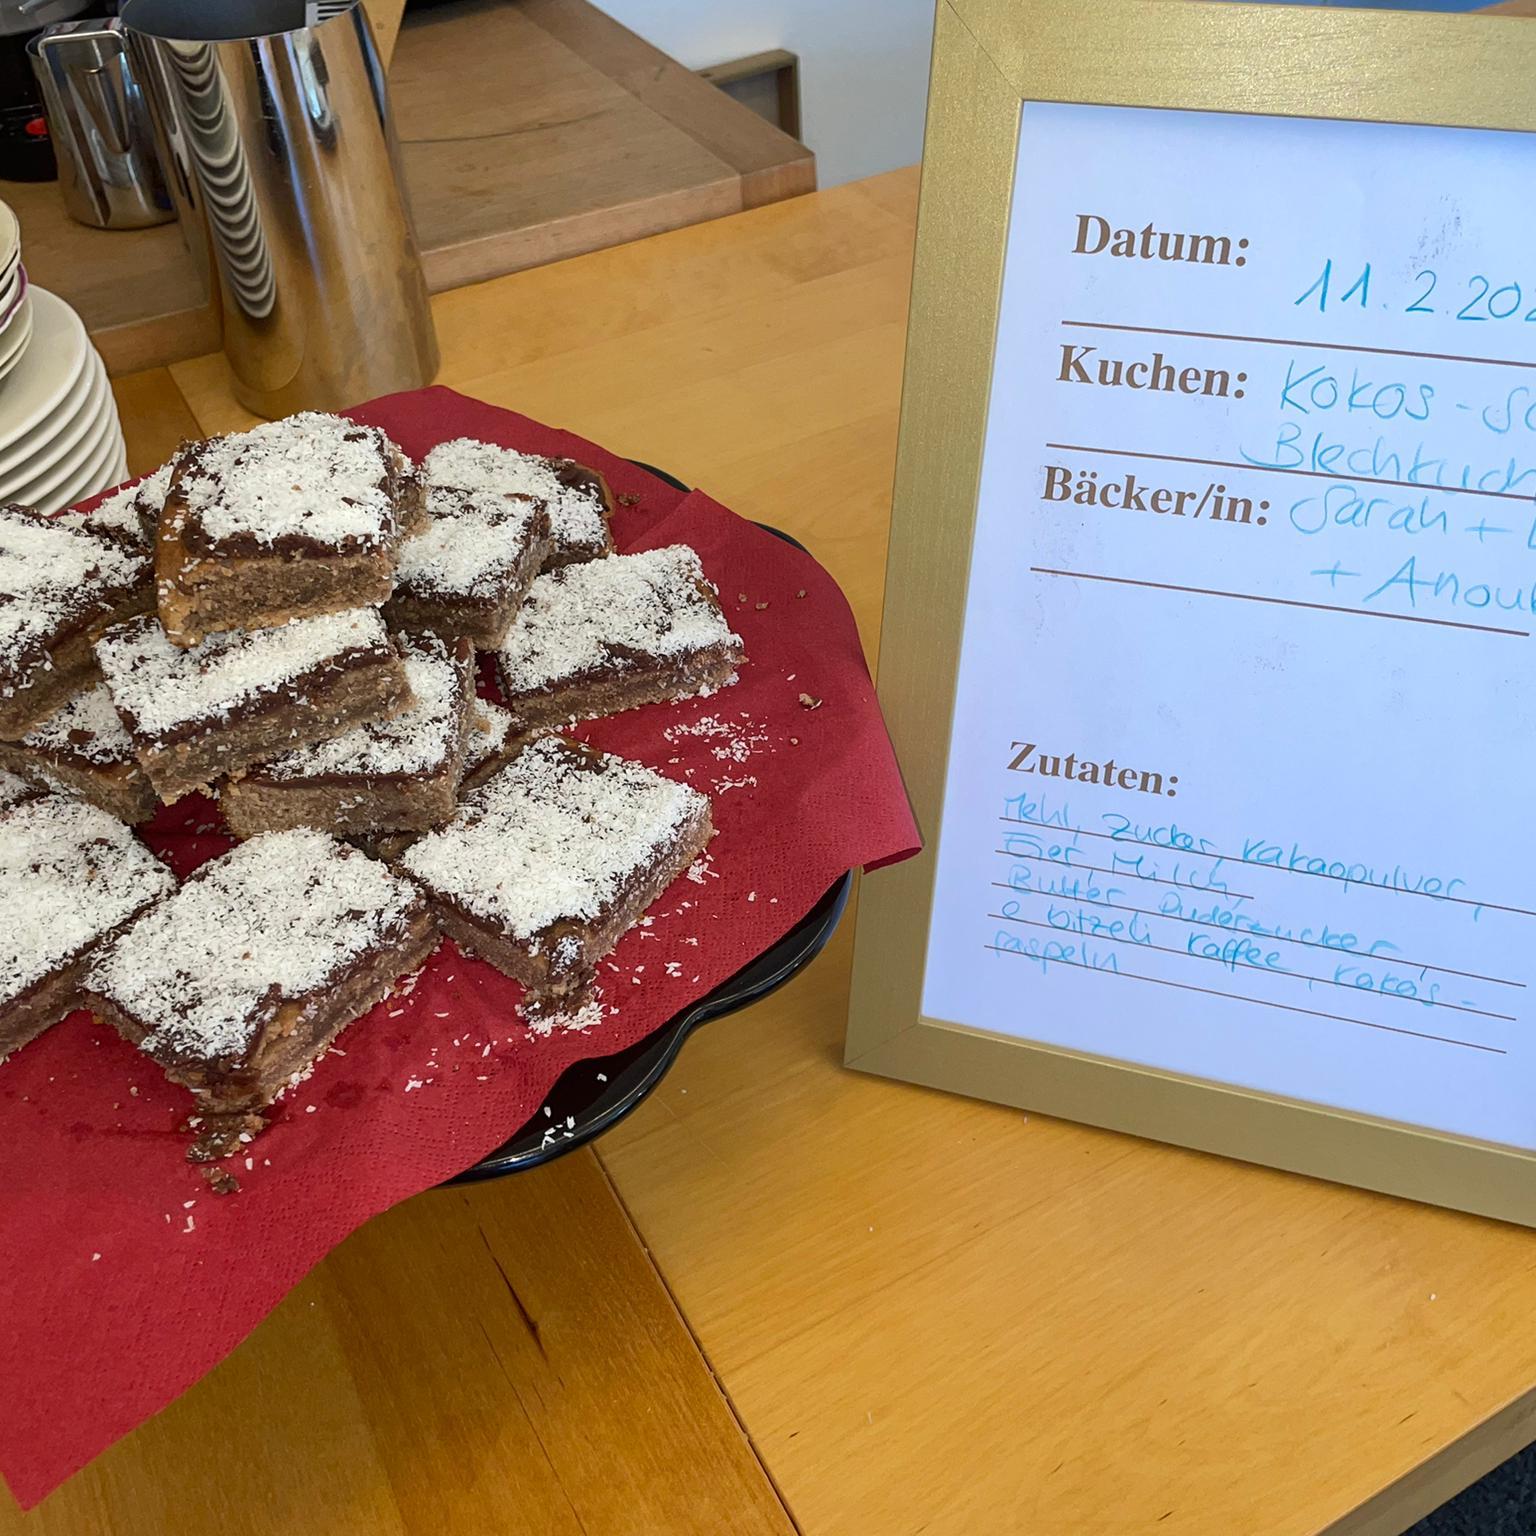 Datum: 11.2.202
Kuchen: Kokos - Sc
Blechkuch
Bäcker/in: Sarah +
+ Anouk
Zutaten:
Mehl, Zucker, Kakaopulver,
Eier, Milch,
Butter Puderzucker
e bitzeli Kaffee, Kokos-
raspeln